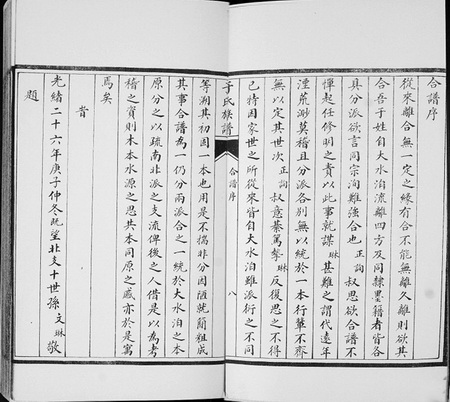 合譜序
從來離合無一定之緣有合不能無離久離則欲其
合吾于姓自大水泊流離四方及同隸墨籍者皆各
具分派欲言同宗洵難強合也正詢叔思欲合譜不
憚起任修明之責以此事就謀琳甚難之謂代遠年
湮荒渺莫稽且分派各別無以統於一本行輩不齊
無以定其世次正詢叔意綦篤摯琳反復思之不得
已特因家世之所從來皆自大水泊雖派衍之不同
于氏族譜
合譜序
八
等溯其初因一本也用是不揣非分因陋就簡粗成
其事合譜為一仍分兩派合之一統於大水泊之本
原分之以疏南北派之支流俾後之人借是以為考
稽之實則木本水源之思共本同原之感亦於是寓
焉矣
旹
光緒二十六年庚子仲冬既望北支十世孫文琳敬
題